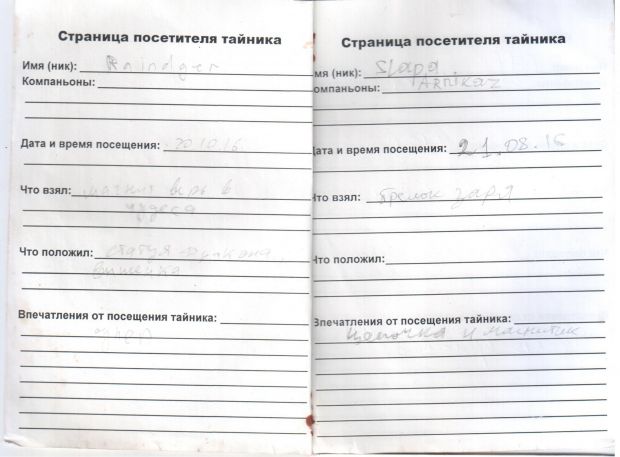 Страница посетителя тайника
Имя (ник): Raindger
Компаньоны:
Дата и время посещения: 20.10.16
Что взял: магнит верь в
чудеса
Что положил: статуя
Впечатления от посещения тайника:
Страница посетителя тайника
мя (ник): Slapa
омпаньоны: ARNikaz
ата и время посещения: 21.08.16
то взял: брелок
то положил:
Впечатления от посещения тайника:
цепочка и магнитик